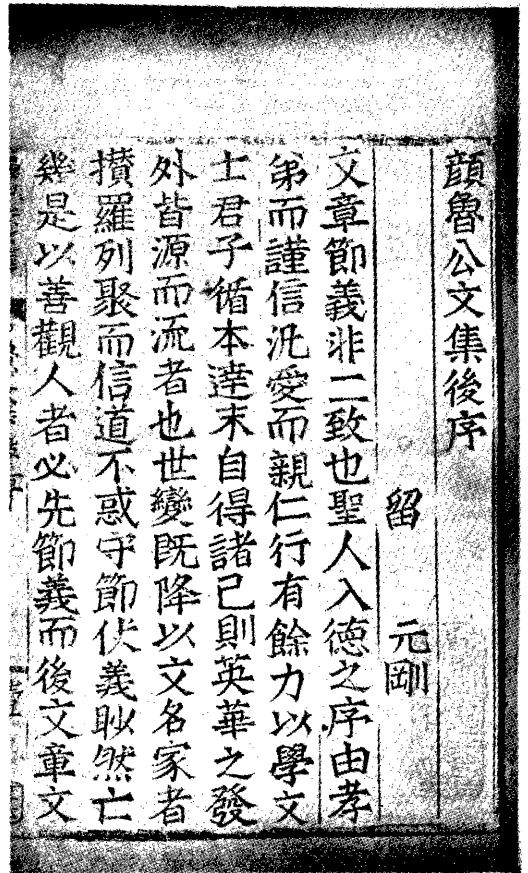 顔魯公文集後序
留 元剛
文章節義非二致也聖人入德之序由孝
弟而謹信汎愛而親仁行有餘力以學文
士君子循本達末自得諸已則英華之發
外皆源而流者也世變旣降以文名家者
攅羅列聚而信道不惑守節伏義眇然亡
幾是以善觀人者必先節義而後文章文